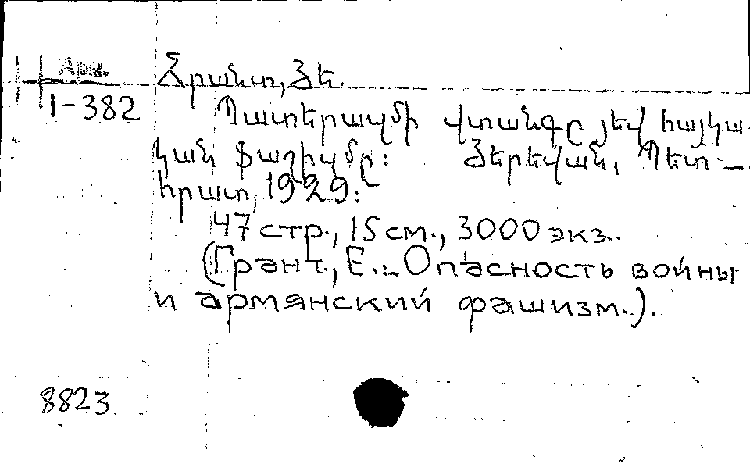 Арм.
I-382
Հրանտ, Յե.
Պատերազմի վտանգը յեվ հայկա-
կան ֆաշիզմը: Յերեվան, Պետ-
հրատ, 1929:
47 стр., 15 см., 3000 экз..
(Грант., Е.. Опасность войны
и армянский фашизм.).
8823